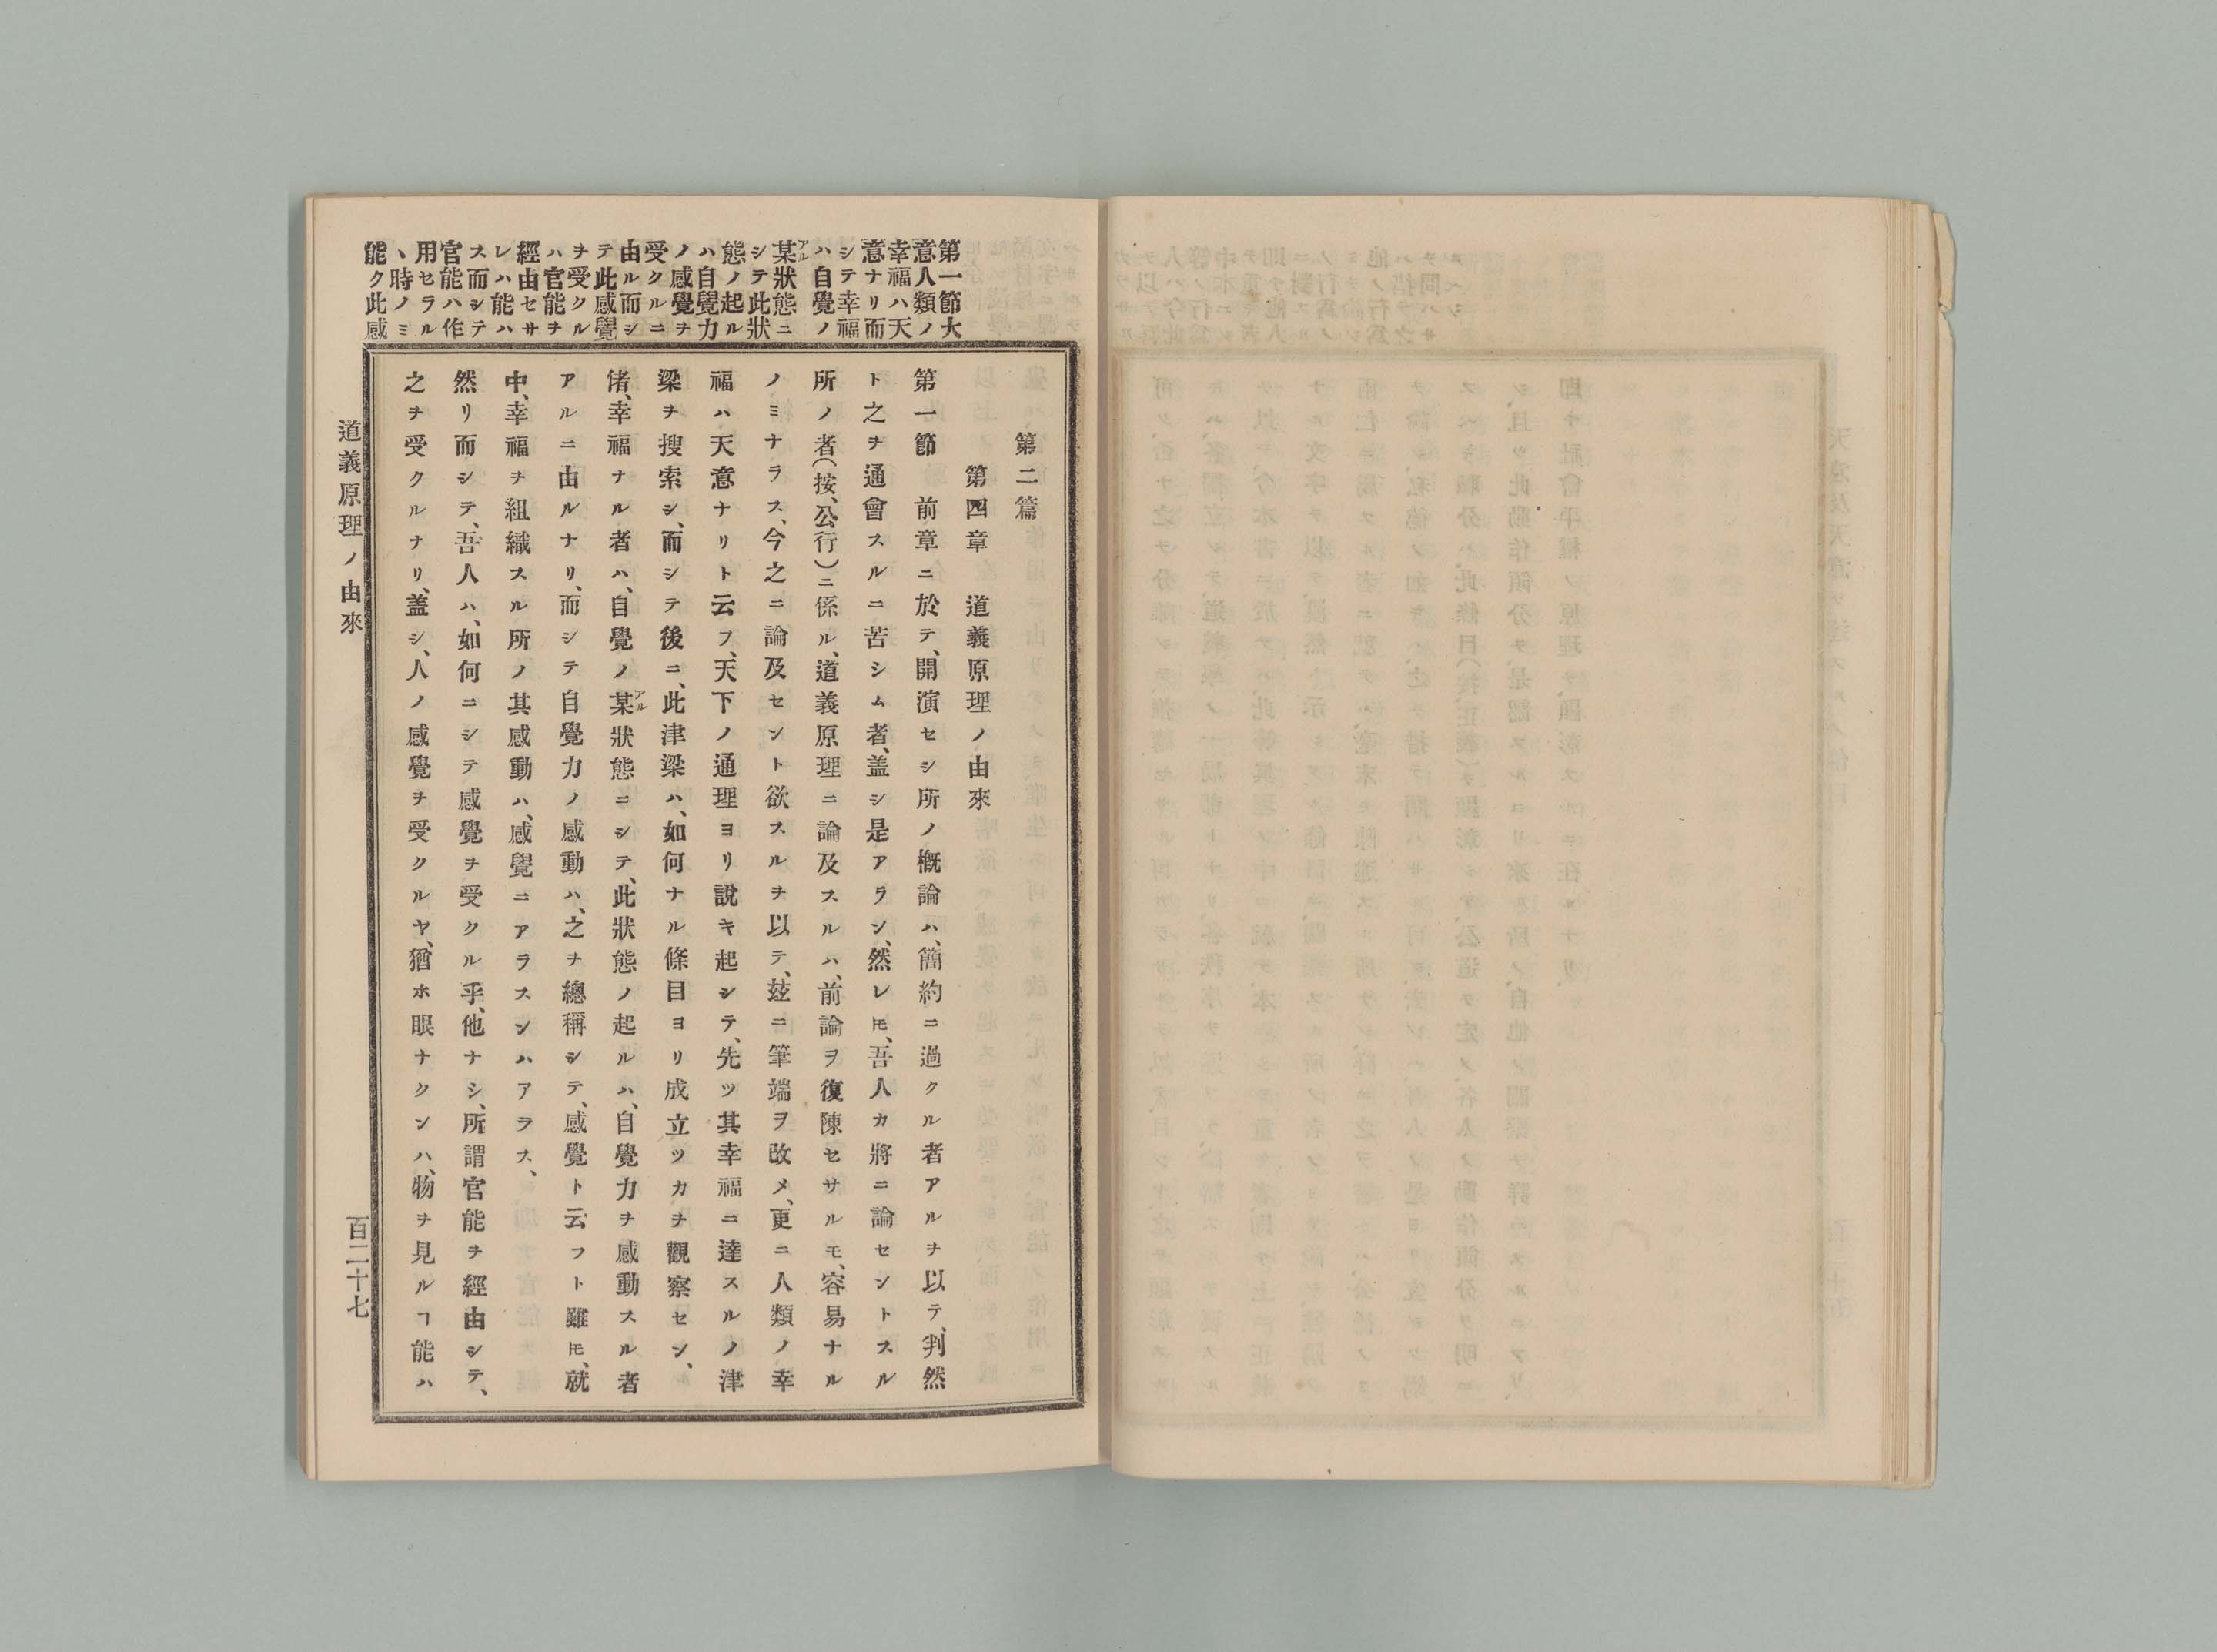 第一節大
意人類ノ
幸福ハ天
意ナリ而
シテ幸福
ハ自覺ノ
某狀態ニ
シテ此狀
態ノ起ル
ハ自覺力
ノ感覺ヲ
受クルニ
由ル而シ
テ此感覺
ヲ受クル
ハ官能ヲ
經由セサ
レハ能ハ
ス而シテ
官能ハ作
用セラル
ヽ時ノミ
能ク此感
第二篇
第四章　道義原理ノ由來
第一節　前章ニ於テ、開演セシ所ノ概論ハ、簡約ニ過クル者アルヲ以テ、判然
ト之ヲ通會スルニ苦シム者、盖シ是アラン、然レ𪜈、吾人カ將ニ論セントスル
所ノ者(按、公行)ニ係ル、道義原理ニ論及スルハ、前論ヲ復陳セサルモ、容易ナル
ノミナラス、今之ニ論及セント欲スルヲ以テ、玆ニ筆端ヲ改メ、更ニ人類ノ幸
福ハ天意ナリト云フ、天下ノ通理ヨリ說キ起シテ、先ツ其幸福ニ達スルノ津
梁ヲ搜索シ、而シテ後ニ、此津梁ハ、如何ナル條目ヨリ成立ツカヲ觀察セン、
偖、幸福ナル者ハ、自覺ノ某狀態ニシテ、此狀態ノ起ルハ、自覺力ヲ感動スル者
アルニ由ルナリ、而シテ自覺力ノ感動ハ、之ヲ總稱シテ、感覺ト云フト雖𪜈、就
中、幸福ヲ組織スル所ノ其感動ハ、感覺ニアラスンハアラス、
然リ而シテ、吾人ハ、如何ニシテ感覺ヲ受クル乎、他ナシ、所謂官能ヲ經由シテ、
之ヲ受クルナリ、盖シ、人ノ感覺ヲ受クルヤ、猶ホ眼ナクンハ、物ヲ見ルヿ能ハ
道義原理ノ由來
百二十七